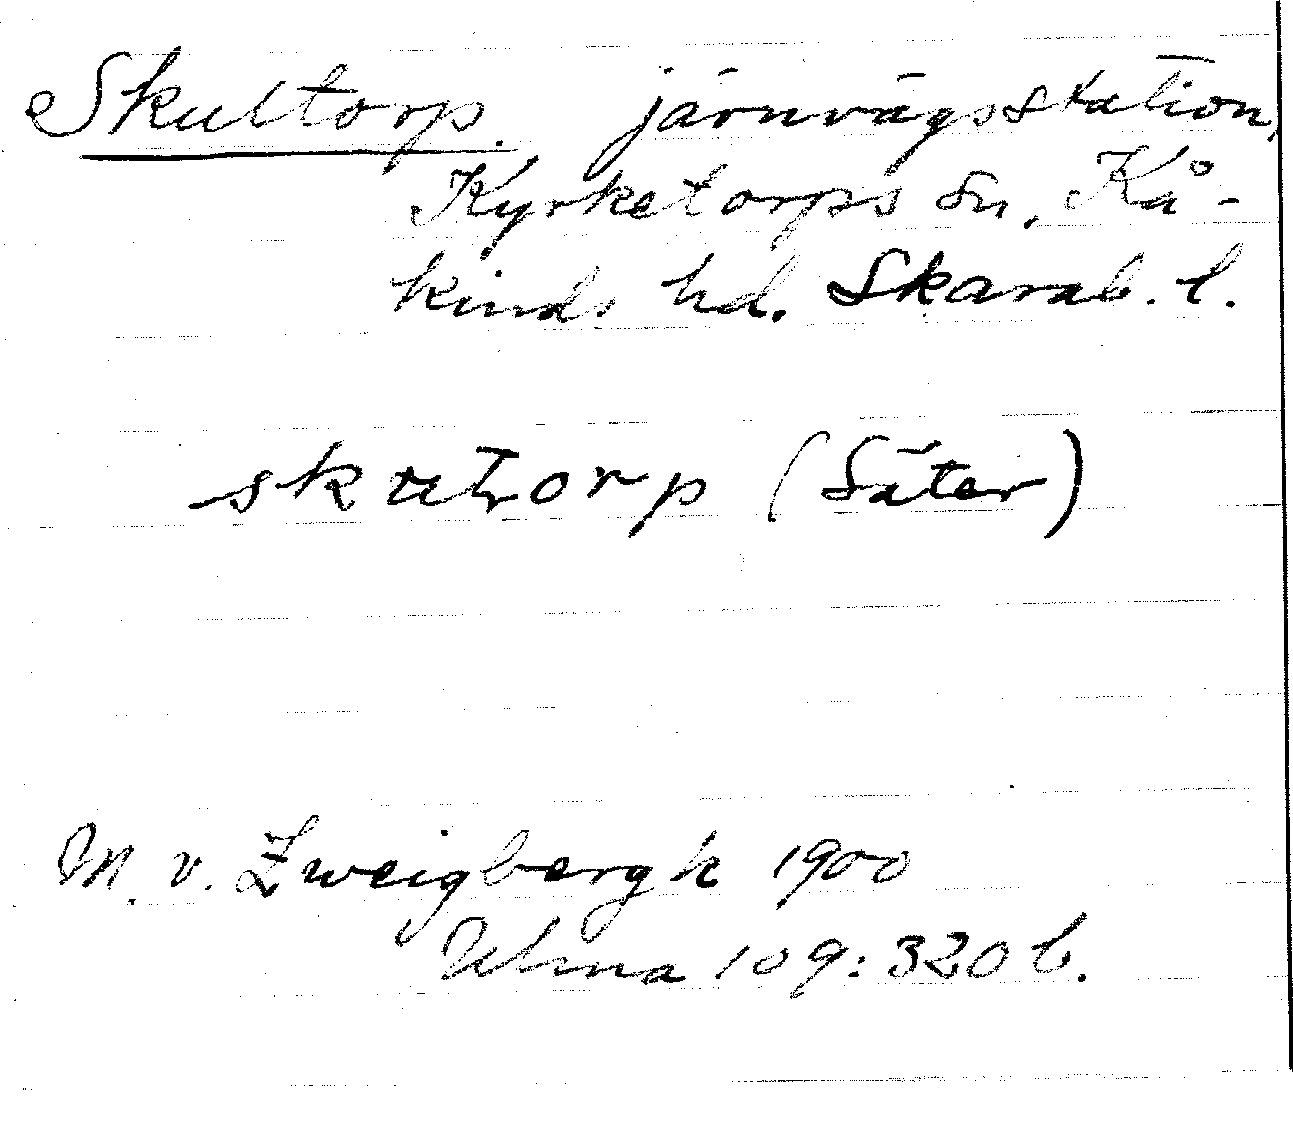 Skultorp. järnvägsstation,
Kyrketorps sn, Kå-
kinds hd. Skarab. l.
skutorp (Säter)
M. v. Zweigbergk 1900
Ulma 109:320 b.